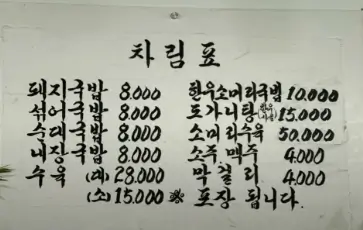 차림표
돼지국밥 8.000
섞어국밥 8.000
수대국밥 8.000
내장국밥 8.000
수육 (대) 28.000
(소) 15.000
한우소머리국밥 10.000
도가니탕 15.000
소머리수육 50.000
소주.맥주 4.000
막걸리 4.000
※ 포장 됩니다.